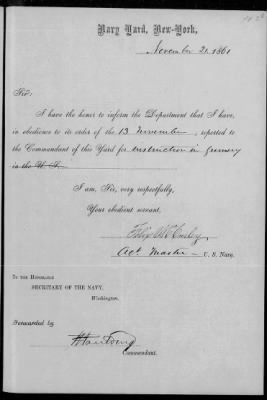 Navy Yard, New-York,
November 21, 1861
Sir:
I have the honor to inform the Department that I have,
in obedience to its order of the 13 November, reported to
the Commandant of this Yard for instruction in gunnery
in the U. S.
I am, Sir, very respectfully,
Your obedient servant,
Felix McCurley
Act. Master U. S. Navy.
To the Honorable
SECRETARY OF THE NAVY,
Washington.
Forwarded by
Commandant.